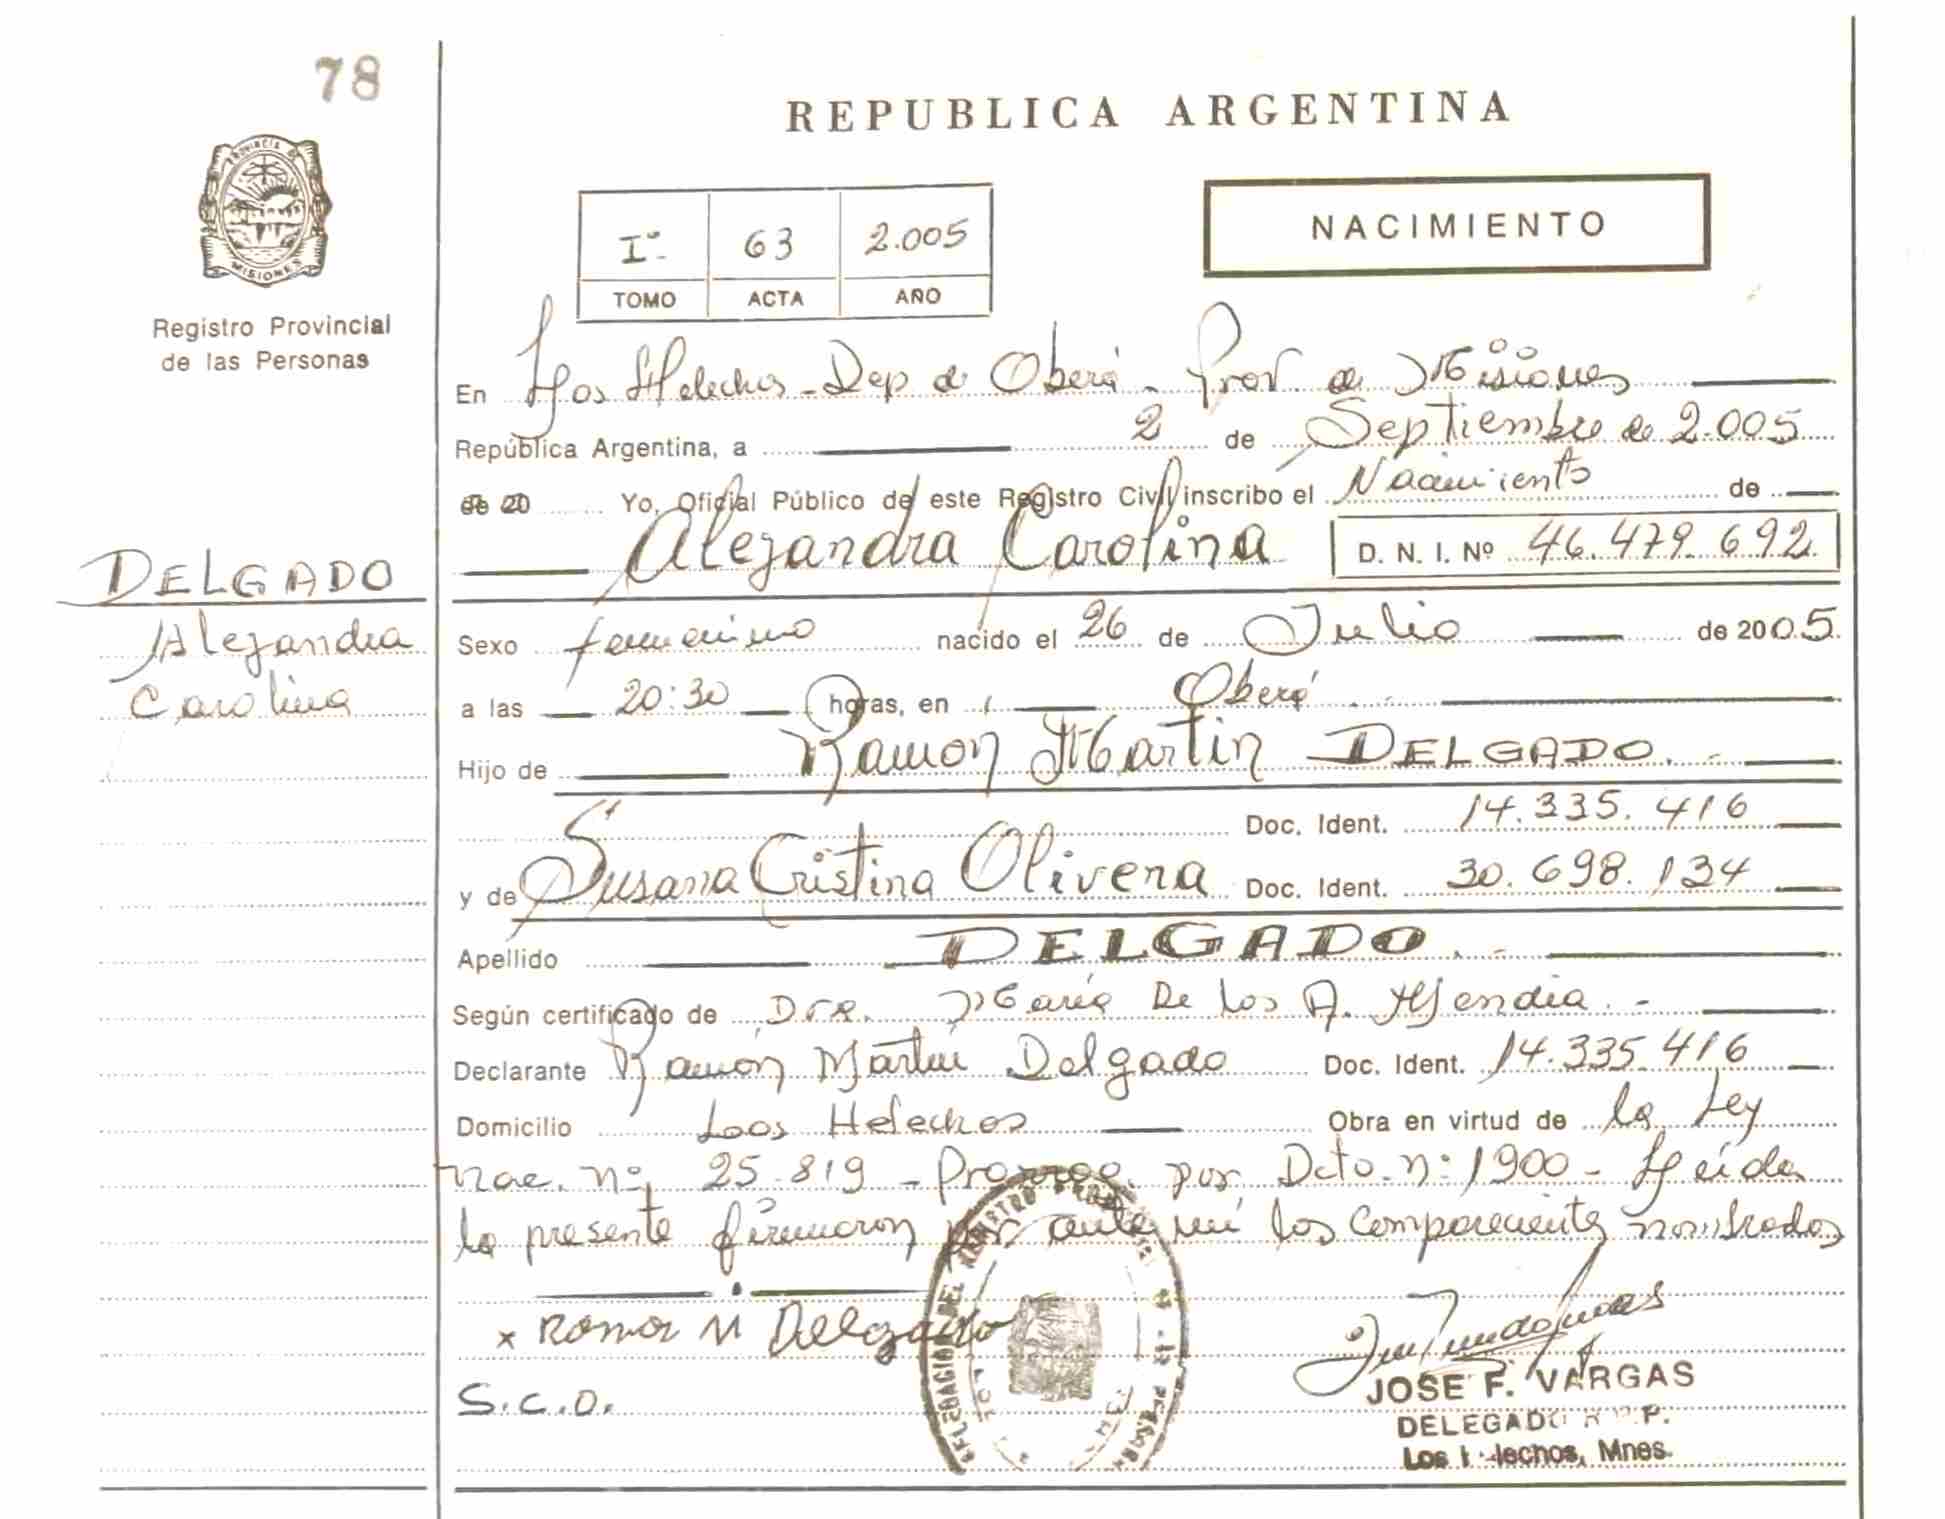 78
REPUBLICA ARGENTINA
PROVINCIA DE
MISIONES
Registro Provincial
de las Personas
NACIMIENTO
Iº 63 2.005
TOMO ACTA AÑO
En Los Helechos - Dep de Oberá - Prov. de Misiones
República Argentina, a 2 de Septiembre de 2.005
de 20 Yo, Oficial Público de este Registro Civil inscribo el Nacimiento de
Alejandra Carolina D. N. I. Nº 46.479.692
DELGADO
Alejandra
Carolina
Sexo femenino nacido el 26 de Julio de 2005
a las 20:30 horas, en Oberá
Hijo de Ramon Martin DELGADO.-
Doc. Ident. 14.335.416
y de Susana Cristina Olivera Doc. Ident. 30.698.134
Apellido DELGADO.-
Según certificado de Dra. María De los A. Mendia.-
Declarante Ramón Martín Delgado Doc. Ident. 14.335.416
Domicilio Los Helechos Obra en virtud de la Ley
Nac. Nº 25.819 - Prorrog. por Dcto. Nº 1900 - Leída
la presente firmaron por ante mí los comparecientes nombrados
x Ramon M Delgado
S.C.O.
DELEGACION DEL REGISTRO
JOSE F. VARGAS
DELEGADO R.P.P.
Los Helechos, Mnes.